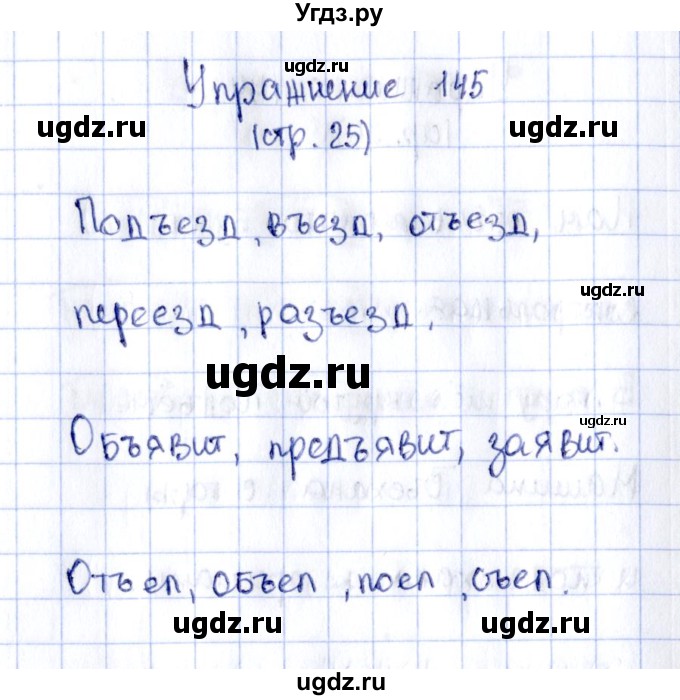 Угдз.ру
ugdz.ru
Упражнение 145
ugdz.ru
ugdz.ru
(стр. 25)
Подъезд, въезд, отъезд,
ugdz.ru
переезд, разъезд.
ugdz.ru
Объявит, предъявит, заявит.
Отъел, объел, поел, съел.
ugdz.ru
ugdz.ru